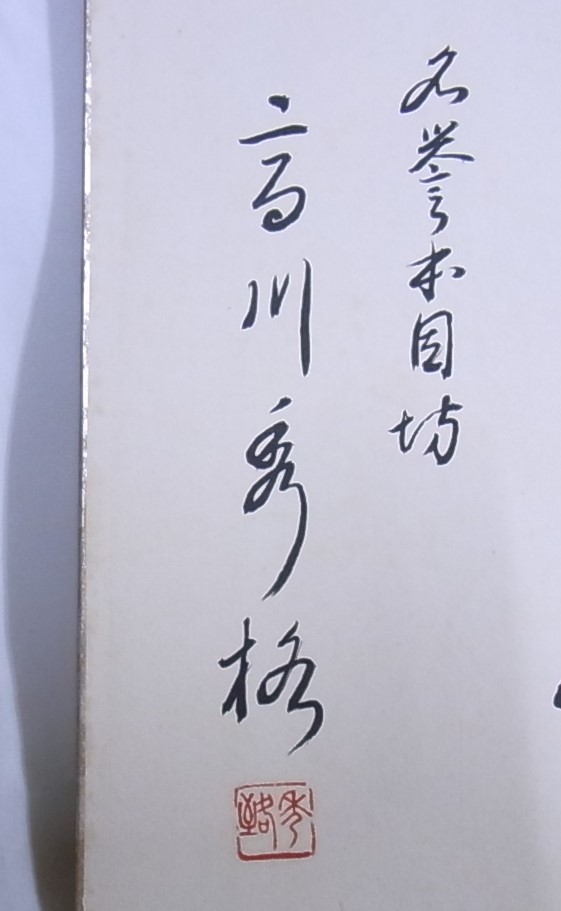 名誉本因坊
高川秀格